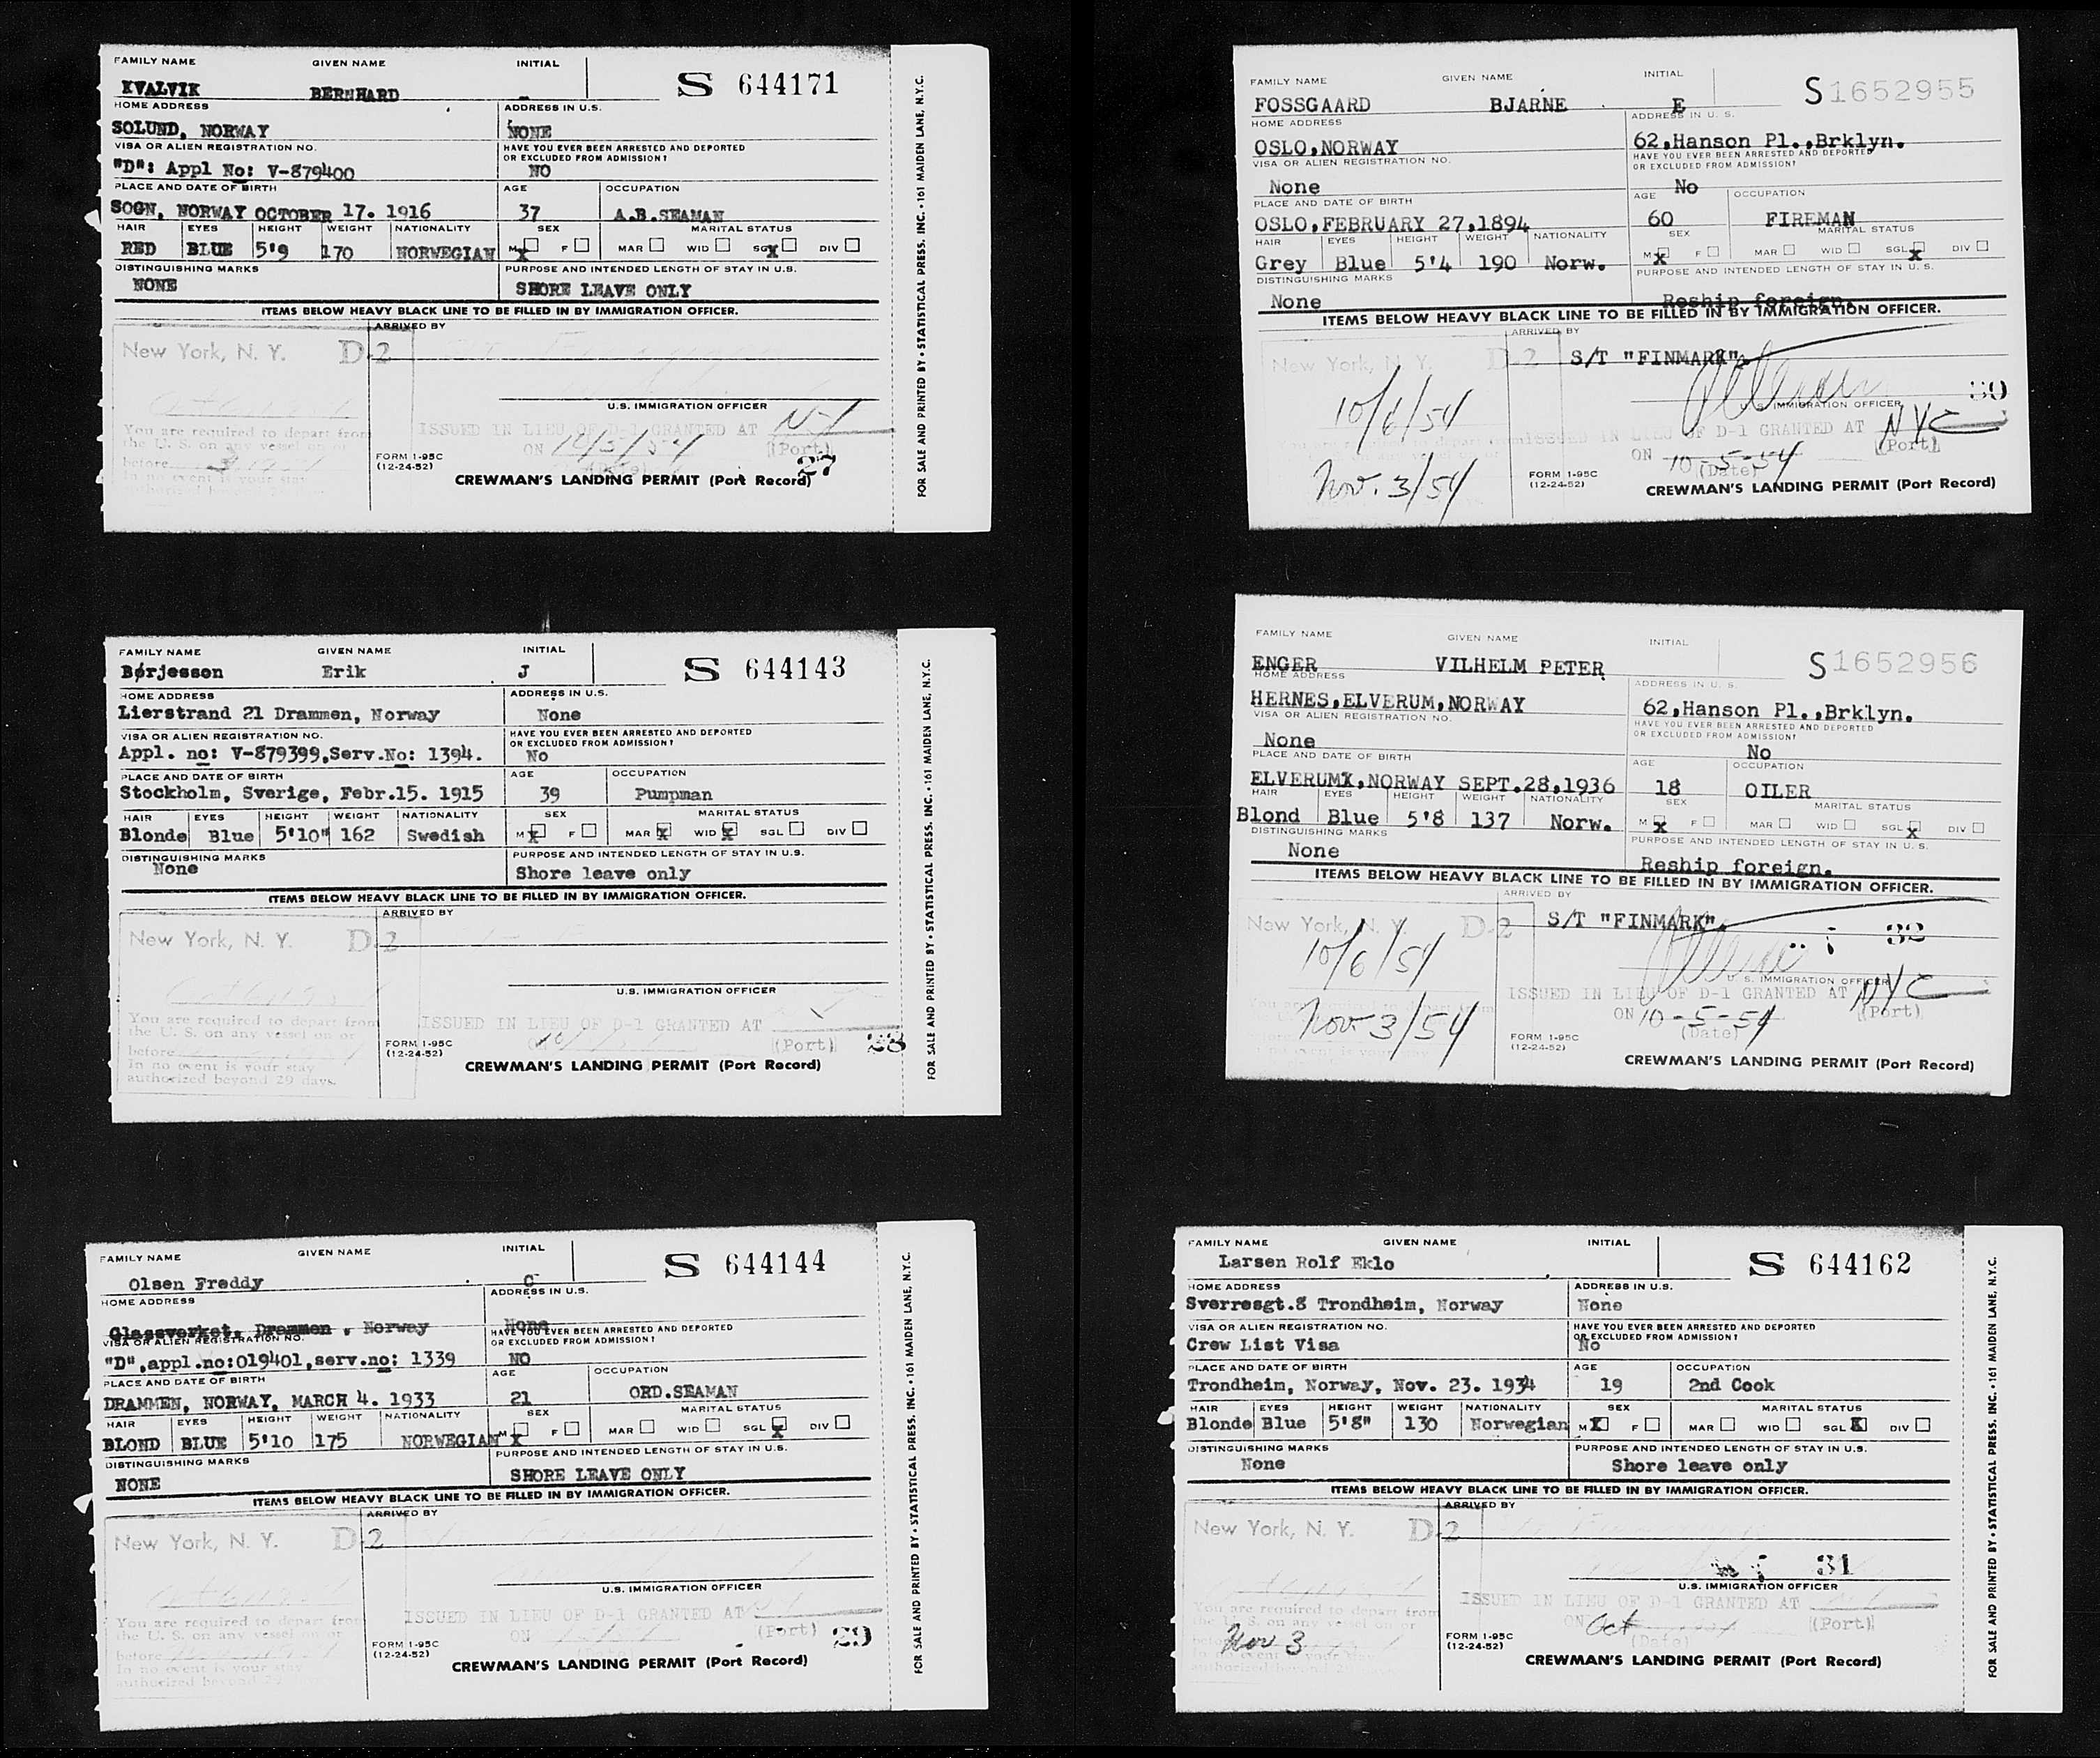 FAMILY NAME GIVEN NAME INITIAL
S 644171
KVALVIK BERNHARD -
HOME ADDRESS ADDRESS IN U.S.
SOLUND, NORWAY NONE
VISA OR ALIEN REGISTRATION NO. HAVE YOU EVER BEEN ARRESTED AND DEPORTED
OR EXCLUDED FROM ADMISSION?
"D": Appl No: V-879400 NO
PLACE AND DATE OF BIRTH AGE OCCUPATION
SOGN, NORWAY OCTOBER 17. 1916 37 A.B.SEAMAN
HAIR EYES HEIGHT WEIGHT NATIONALITY SEX MARITAL STATUS
RED BLUE 5'9 170 NORWEGIAN M X F MAR WID SGL X DIV
DISTINGUISHING MARKS PURPOSE AND INTENDED LENGTH OF STAY IN U.S.
NONE SHORE LEAVE ONLY
ITEMS BELOW HEAVY BLACK LINE TO BE FILLED IN BY IMMIGRATION OFFICER.
ARRIVED BY
New York, N. Y. D-2
U.S. IMMIGRATION OFFICER
You are required to depart from
the U. S. on any vessel on or
before
ISSUED IN LIEU OF D-1 GRANTED AT N-Y
ON 10/5/54 (Port)
(Date)
In no event is your stay
authorized beyond 29
FORM 1-95C
(12-24-52)
27
CREWMAN'S LANDING PERMIT (Port Record)
FOR SALE AND PRINTED BY • STATISTICAL PRESS. INC. • 161 MAIDEN LANE, N.Y.C.
FAMILY NAME GIVEN NAME INITIAL
S 644143
Børjesson Erik J
HOME ADDRESS ADDRESS IN U.S.
Lierstrand 21 Drammen, Norway None
VISA OR ALIEN REGISTRATION NO. HAVE YOU EVER BEEN ARRESTED AND DEPORTED
OR EXCLUDED FROM ADMISSION?
Appl. no: V-879399,Serv.No: 1394. No
PLACE AND DATE OF BIRTH AGE OCCUPATION
Stockholm, Sverige, Febr.15. 1915 39 Pumpman
HAIR EYES HEIGHT WEIGHT NATIONALITY SEX MARITAL STATUS
Blonde Blue 5'10" 162 Swedish M X F MAR X WID X SGL DIV
DISTINGUISHING MARKS PURPOSE AND INTENDED LENGTH OF STAY IN U.S.
None Shore leave only
ITEMS BELOW HEAVY BLACK LINE TO BE FILLED IN BY IMMIGRATION OFFICER.
ARRIVED BY
New York, N. Y. D-2
U.S. IMMIGRATION OFFICER
You are required to depart from
the U. S. on any vessel on or
before
In no event is your stay
authorized beyond 29 days.
ISSUED IN LIEU OF D-1 GRANTED AT
(Port) 28
FORM 1-95C
(12-24-52)
CREWMAN'S LANDING PERMIT (Port Record)
FOR SALE AND PRINTED BY • STATISTICAL PRESS. INC. • 161 MAIDEN LANE, N.Y.C.
FAMILY NAME GIVEN NAME INITIAL
S 644144
Olsen Freddy C
HOME ADDRESS ADDRESS IN U.S.
Glassverket, Drammen, Norway None
VISA OR ALIEN REGISTRATION NO. HAVE YOU EVER BEEN ARRESTED AND DEPORTED
OR EXCLUDED FROM ADMISSION?
"D",appl.no:019401,serv.no: 1339 NO
PLACE AND DATE OF BIRTH AGE OCCUPATION
DRAMMEN, NORWAY, MARCH 4. 1933 21 ORD.SEAMAN
HAIR EYES HEIGHT WEIGHT NATIONALITY SEX MARITAL STATUS
BLOND BLUE 5'10 175 NORWEGIAN M X F MAR WID SGL X DIV
DISTINGUISHING MARKS PURPOSE AND INTENDED LENGTH OF STAY IN U.S.
NONE SHORE LEAVE ONLY
ITEMS BELOW HEAVY BLACK LINE TO BE FILLED IN BY IMMIGRATION OFFICER.
ARRIVED BY
New York, N. Y. D-2
U.S. IMMIGRATION OFFICER
You are required to depart from
the U. S. on any vessel on or
before
In no event is your stay
authorized beyond 29
ISSUED IN LIEU OF D-1 GRANTED AT
ON (Port) 29
FORM 1-95C
(12-24-52)
CREWMAN'S LANDING PERMIT (Port Record)
FOR SALE AND PRINTED BY • STATISTICAL PRESS. INC. • 161 MAIDEN LANE, N.Y.C.
FAMILY NAME GIVEN NAME INITIAL
S 1652955
FOSSGAARD BJARNE E
HOME ADDRESS ADDRESS IN U. S.
OSLO,NORWAY 62,Hanson Pl.,Brklyn.
VISA OR ALIEN REGISTRATION NO. HAVE YOU EVER BEEN ARRESTED AND DEPORTED
OR EXCLUDED FROM ADMISSION?
None No
PLACE AND DATE OF BIRTH AGE OCCUPATION
OSLO,FEBRUARY 27,1894 60 FIREMAN
HAIR EYES HEIGHT WEIGHT NATIONALITY SEX MARITAL STATUS
Grey Blue 5'4 190 Norw. M X F MAR WID SGL X DIV
DISTINGUISHING MARKS PURPOSE AND INTENDED LENGTH OF STAY IN U. S.
None Reship foreign.
ITEMS BELOW HEAVY BLACK LINE TO BE FILLED IN BY IMMIGRATION OFFICER.
ARRIVED BY
New York, N. Y. D-2 S/T "FINMARK".
10/6/54
30
U. S. IMMIGRATION OFFICER
ISSUED IN LIEU OF D-1 GRANTED AT NYC
(Port)
ON 10-5-54
(Date)
Nov. 3/54
FORM 1-95C
(12-24-52)
CREWMAN'S LANDING PERMIT (Port Record)
FAMILY NAME GIVEN NAME INITIAL
S 1652956
ENGER VILHELM PETER
HOME ADDRESS ADDRESS IN U. S.
HERNES,ELVERUM,NORWAY 62,Hanson Pl.,Brklyn.
VISA OR ALIEN REGISTRATION NO. HAVE YOU EVER BEEN ARRESTED AND DEPORTED
OR EXCLUDED FROM ADMISSION?
None No
PLACE AND DATE OF BIRTH AGE OCCUPATION
ELVERUMX,NORWAY SEPT.28,1936 18 OILER
HAIR EYES HEIGHT WEIGHT NATIONALITY SEX MARITAL STATUS
Blond Blue 5'8 137 Norw. M X F MAR WID SGL X DIV
DISTINGUISHING MARKS PURPOSE AND INTENDED LENGTH OF STAY IN U. S.
None Reship foreign.
ITEMS BELOW HEAVY BLACK LINE TO BE FILLED IN BY IMMIGRATION OFFICER.
ARRIVED BY
New York, N. Y. D-2 S/T "FINMARK".
32
10/6/54
U. S. IMMIGRATION OFFICER
ISSUED IN LIEU OF D-1 GRANTED AT NYC
ON 10-5-54 (Port)
(Date)
Nov 3/54
FORM 1-95C
(12-24-52)
CREWMAN'S LANDING PERMIT (Port Record)
FAMILY NAME GIVEN NAME INITIAL
S 644162
Larsen Rolf Eklo
HOME ADDRESS ADDRESS IN U.S.
Sverresgt.8 Trondheim, Norway None
VISA OR ALIEN REGISTRATION NO. HAVE YOU EVER BEEN ARRESTED AND DEPORTED
OR EXCLUDED FROM ADMISSION?
Crew List Visa No
PLACE AND DATE OF BIRTH AGE OCCUPATION
Trondheim, Norway, Nov. 23. 1934 19 2nd Cook
HAIR EYES HEIGHT WEIGHT NATIONALITY SEX MARITAL STATUS
Blonde Blue 5'8" 130 Norwegian M X F MAR WID SGL X DIV
DISTINGUISHING MARKS PURPOSE AND INTENDED LENGTH OF STAY IN U.S.
None Shore leave only
ITEMS BELOW HEAVY BLACK LINE TO BE FILLED IN BY IMMIGRATION OFFICER.
ARRIVED BY
New York, N. Y. D-2
31
U.S. IMMIGRATION OFFICER
You are required to depart from
the U. S. on any vessel on or
Nov 3
ISSUED IN LIEU OF D-1 GRANTED AT
ON Oct (Port)
(Date)
FORM 1-95C
(12-24-52)
CREWMAN'S LANDING PERMIT (Port Record)
FOR SALE AND PRINTED BY • STATISTICAL PRESS. INC. • 161 MAIDEN LANE, N.Y.C.